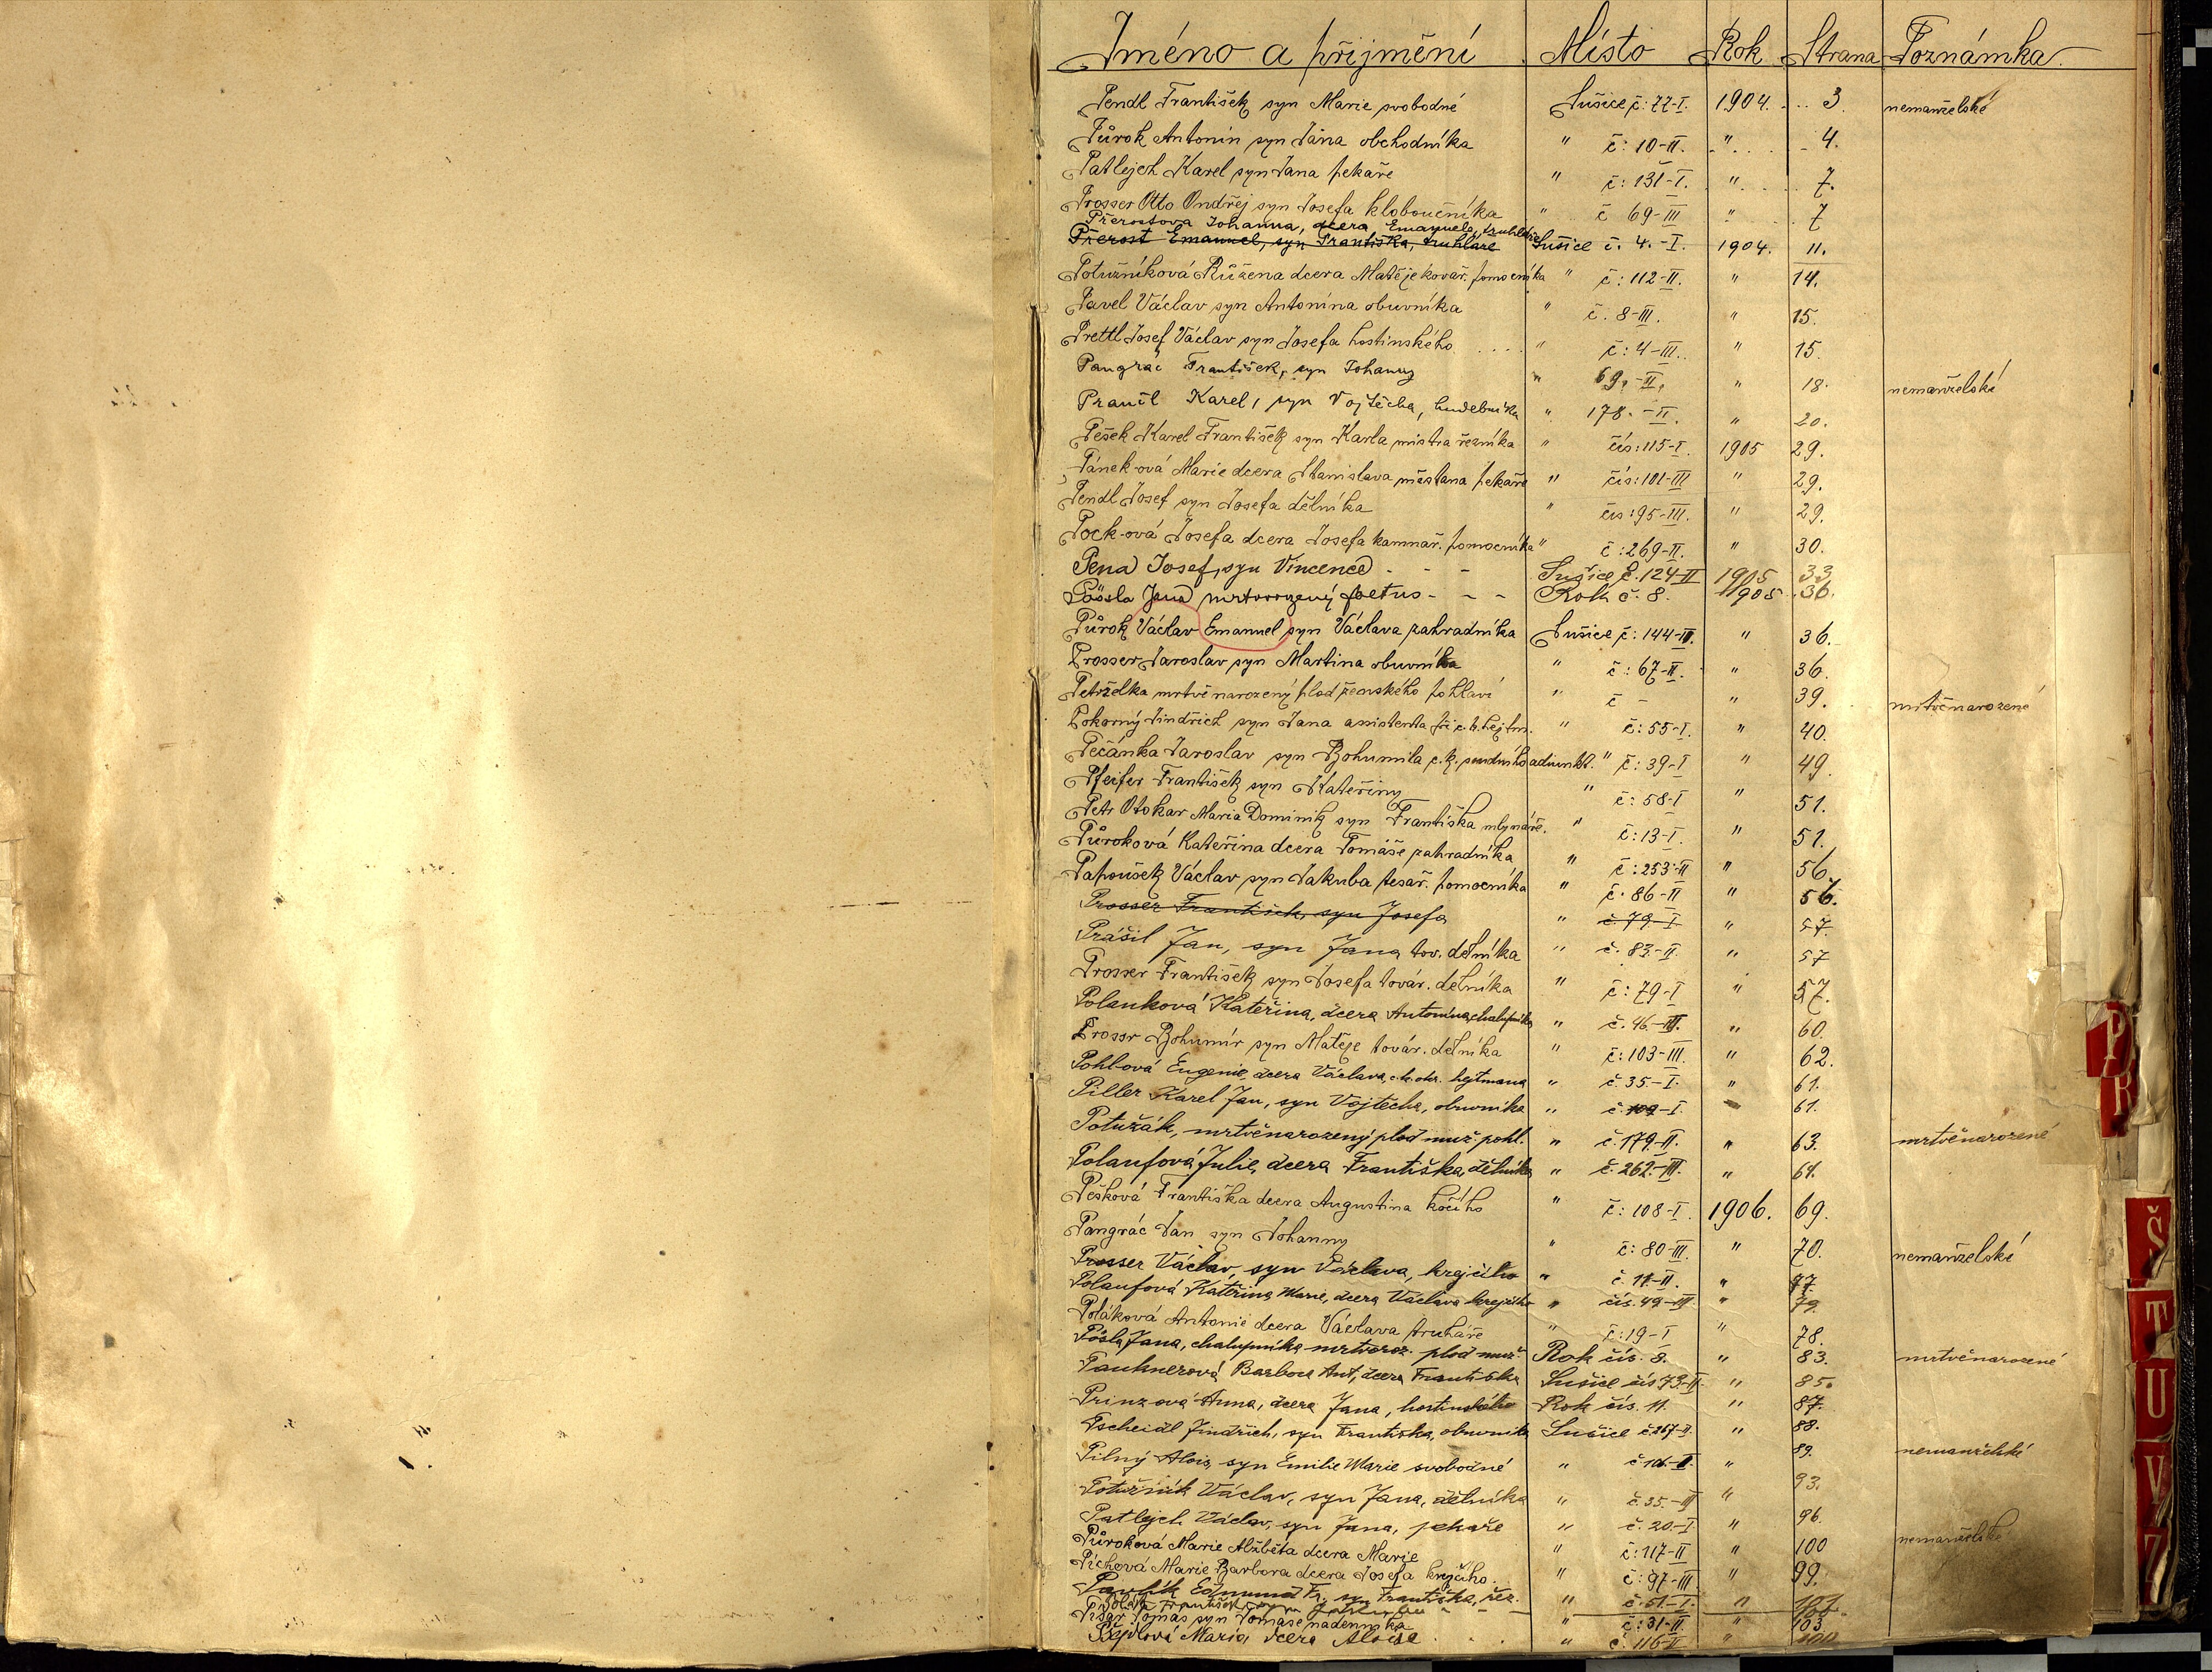 Jméno a přijmění Místo Rok Strana Poznámka
Pendl František syn Marie svobodné Sušice č: 77-I. 1904. 3 nemanželské
Půrok Antonín syn Jana obchodníka " č: 10-II. " 4.
Patlejch Karel syn Jana pekaře " č: 131-I. " 7.
Prosser Otto Ondřej syn Josefa kloboučníka " č 69-III " 7
Přerostova Johanna, dcera Emanuela, truhláře
Přerost Emanuel, syn Františka, truhláře Sušice č. 4.-I. 1904. 11.
Potužníková Růžena dcera Matěje kovář. pomocníka " č: 112-II. " 14.
Pavel Václav syn Antonína obuvníka " č. 8-III. " 15.
Prettl Josef Václav syn Josefa hostinského " č: 4-III. " 15.
Pangrác František, syn Johanny " 69.-II. " 18. nemanželské
Praučl Karel, syn Vojtěcha, hudebníka " 178.-II. " 20.
Pešek Karel František syn Karla mistra řezníka " čís: 115-I. 1905 29.
Pánek-ová Marie dcera Stanislava měšťana pekaře " čís: 101-III " 29.
Pendl Josef syn Josefa dělníka " čís: 95-III. " 29.
Pock-ová Josefa dcera Josefa kamnař. pomocníka " č: 269-II. " 30.
Pena Josef, syn Vincence - - - Sušice č. 124-II 1905 33
Pössla Jana mrtvorozený foetus - - - Rok č. 8. 1905. 36.
Půrok Václav Emanuel syn Václava zahradníka Sušice č: 144-III. " 36.
Prosser Jaroslav syn Martina obuvníka " č: 67-II. " 36.
Petrželka mrtvě narozený plod ženského pohlaví " č - " 39. mrtvěnarozené
Pokorný Jindřich syn Jana assistenta při c.k. hejtm. " č: 55-I. " 40.
Pečánka Jaroslav syn Bohumila c.k. soudního adiunkt. " č: 39-I " 49.
Pfeifer František syn Kateřiny " č: 58-I " 51.
Petr Otokar Maria Dominik syn Františka mlynáře. " č: 13-I. " 51.
Půroková Kateřina dcera Tomáše zahradníka " č: 253-II " 56
Papoušek Václav syn Jakuba tesař. pomocníka " č: 86-II " 56.
Prosser František, syn Josefa " č 79-I " 57.
Prášil Jan, syn Jana tov. dělníka " č. 83-II. " 57
Prosser František syn Josefa továr. dělníka " č: 79-I " 57.
Polanková Kateřina, dcera Antonína, chalupníka " č. 46.-III. " 60.
Prossr Bohumír syn Matěje továr. dělníka " č: 103-III. " 62.
Pohlová Eugenie dcera Václava, c.k. okr. hejtmana " č. 35.-I. " 61.
Piller Karel Jan, syn Vojtěcha, obuvníka " č. 109-I. " 61.
Potužák, mrtvěnarozený plod muž. pohl. " č. 179-II. " 63. mrtvěnarozené
Polaufová Julie, dcera Františka, dělníka " č. 262.-III. " 64.
Pešková Františka dcera Augustina kočího " č: 108-I. 1906. 69.
Pangrác Jan syn Johanny " č: 80-III. " 70. nemanželské
Prosser Václav, syn Václava, krejčího " č. 11.-II. " 77.
Polaufová Kateřina Marie, dcera Václava krejčího " čís. 49-III " 79.
Poláková Antonie dcera Václava truhláře " č: 19-I " 78.
Pösla Jana, chalupníka mrtvoroz. plod muž. Rok čís. 8. " 83. mrtvěnarozené
Pauknerová Barbora Ant, dcera Františka Sušice čís 73-II. " 85.
Prinzová Anna, dcera Jana, hostinského Rok čís. 11. " 87.
Pscheidl Jindřich, syn Františka, obuvníka Sušice č 267-II. " 88.
Pilný Alois, syn Emilie Marie svobodné " " 89. nemanželské
Potužník Václav, syn Jana, dělníka " č. 35.-III " 93.
Patlejch Václav, syn Jana, pekaře " č. 20.-I " 96.
Půroková Marie Alžběta dcera Marie " č: 117-II " 100 nemanželské
Píchová Marie Barbora dcera Josefa krejčího. " č: 97-III " 99.
Pavlík Edmund Fr., syn Františka, řez. " č. 51.-I. " 101
František, syn
Písař Tomáš syn Tomáše nadenníka " č: 31-II. " 103
Marie dcera Aloise " č. 116-II "
P
R
Š
T
U
V
Z